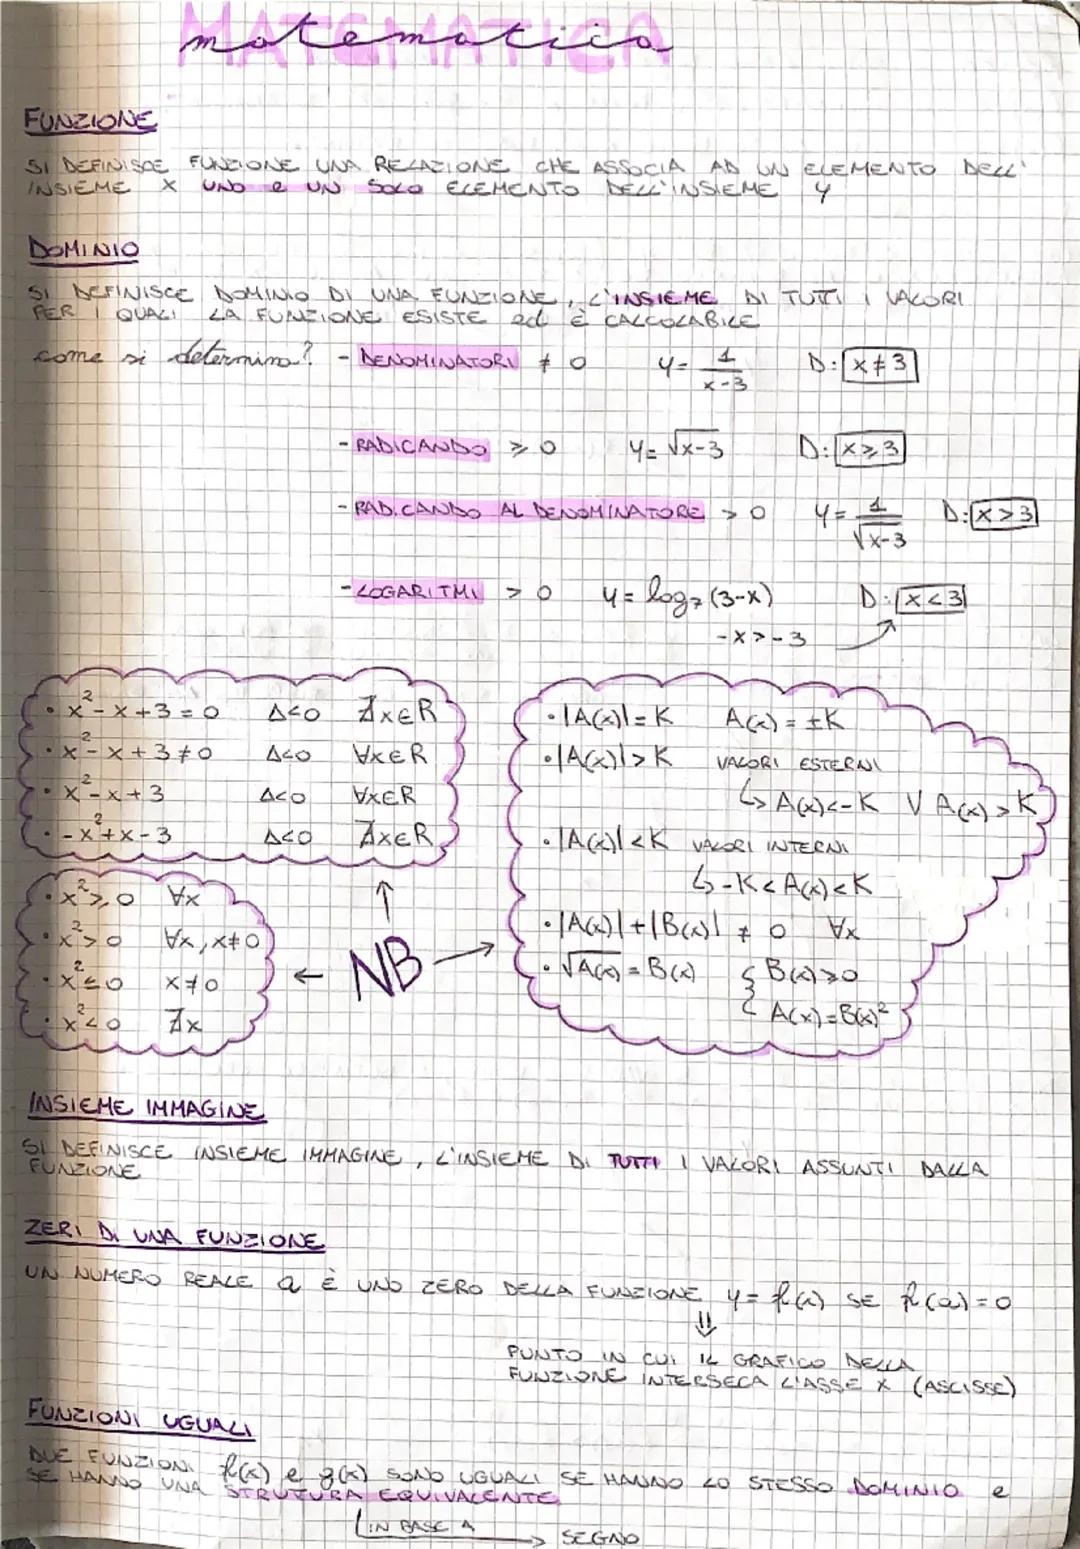 MATEMATICA
matematica
FUNZIONE
SI DEFINISCE FUNZIONE UNA RELAZIONE CHE ASSOCIA AD UN ELEMENTO DELL'
INSIEME X UNO e UN SOLO ELEMENTO DELL'INSIEME Y
DOMINIO
SI DEFINISCE DOMINIO DI UNA FUNZIONE, L'INSIEME DI TUTTI I VALORI
PER I QUALI LA FUNZIONE ESISTE ed È CALCOLABILE
come si determina? - DENOMINATORI ≠ 0 y = 1/(x-3) D: x≠3
- RADICANDO ≥ 0 y = √x-3 D: x≥3
- RADICANDO AL DENOMINATORE > 0 y = 1/√x-3 D: x>3
- LOGARITMI > 0 y = log₇(3-x) D: x<3
-x>-3
• x²-x+3=0 Δ<0 ∄x∈R
• x²-x+3≠0 Δ<0 ∀x∈R
• x²-x+3 Δ<0 ∀x∈R
• -x²+x-3 Δ<0 ∄x∈R
• x²≥0 ∀x
• x²>0 ∀x, x≠0
• x²≤0 x≠0
• x²<0 ∄x
← NB →
↑
• |A(x)|=K A(x)=±K
• |A(x)|>K VALORI ESTERNI
↳ A(x)<-K V A(x)>K
• |A(x)|<K VALORI INTERNI
↳ -K<A(x)<K
• |A(x)|+|B(x)| ≠ 0 ∀x
• √A(x) = B(x) { B(x)≥0
A(x)=B(x)²
INSIEME IMMAGINE
SI DEFINISCE INSIEME IMMAGINE, L'INSIEME DI TUTTI I VALORI ASSUNTI DALLA
FUNZIONE
ZERI DI UNA FUNZIONE
UN NUMERO REALE a È UNO ZERO DELLA FUNZIONE y=f(x) SE f(a)=0
⇓
PUNTO IN CUI IL GRAFICO DELLA
FUNZIONE INTERSECA L'ASSE X (ASCISSE)
FUNZIONI UGUALI
DUE FUNZIONI f(x) e g(x) SONO UGUALI SE HANNO LO STESSO DOMINIO e
SE HANNO UNA STRUTURA EQUIVALENTE
IN BASE A → SEGNO